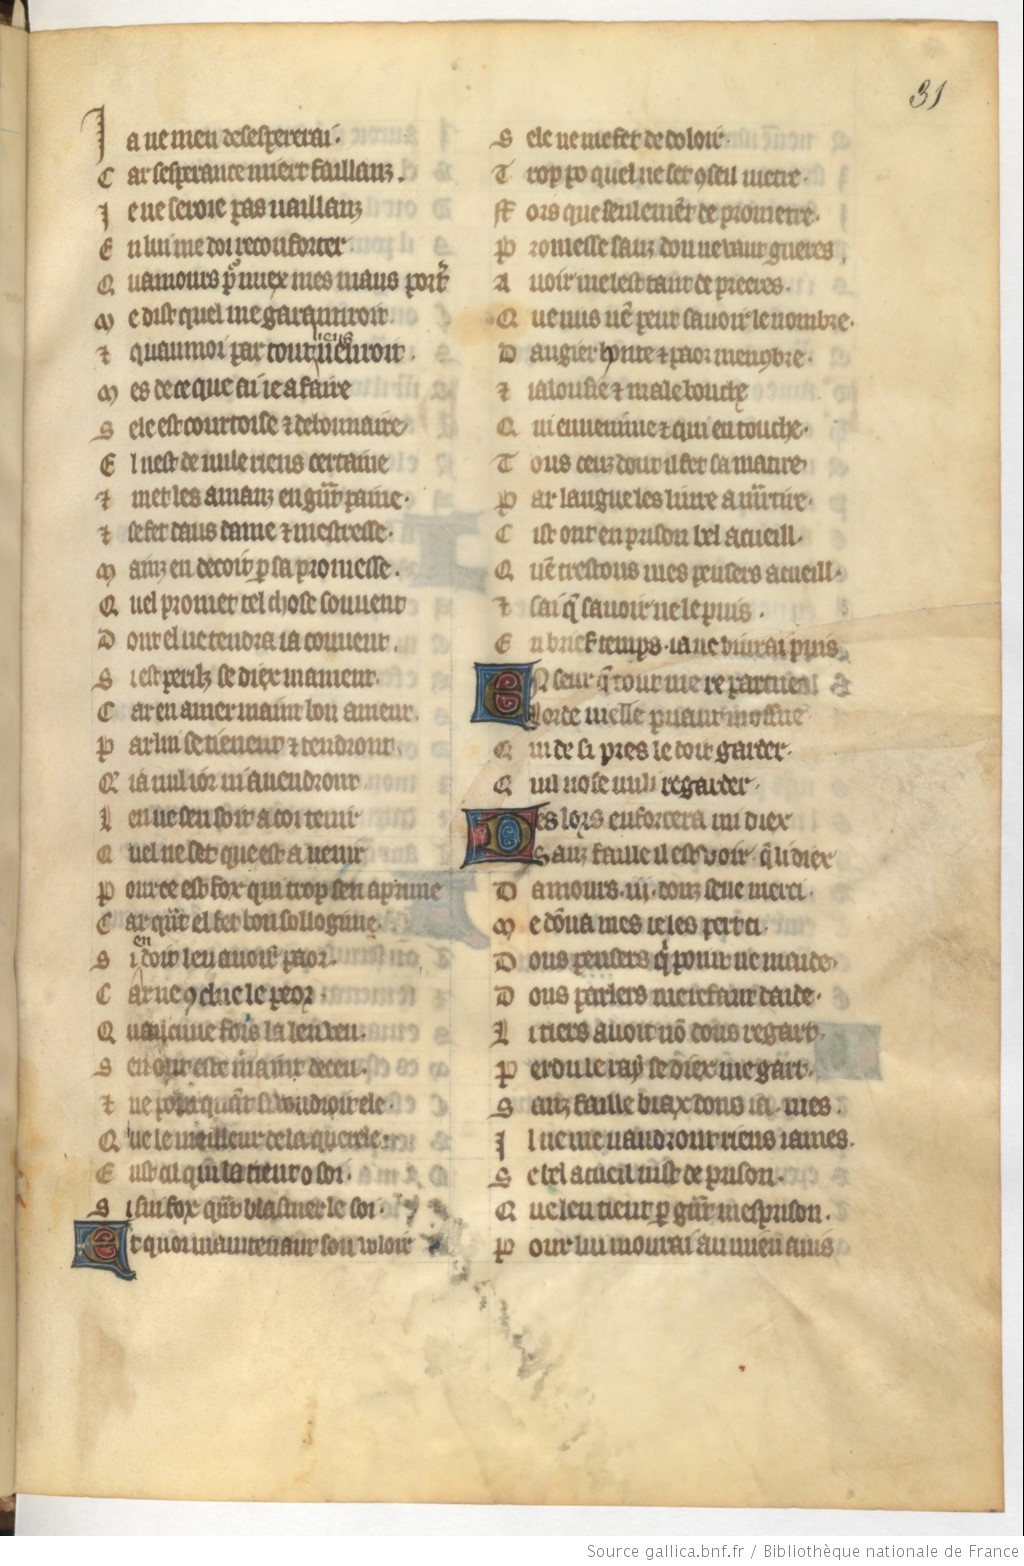 31
Ja ne men desespererai.
Car sesperance miert faillanz.
Je ne seroie pas vaillanz
En lui me doi reconforter
Quamours pͬ miex mes maus portͬ
Me dist quel me garantiroit
⁊ quaumoi par tout iroit.
Mes de ce que ai ie a faire
Sele est courtoise ⁊ debonnaire
El nest de nule riens certaine
⁊ met les amanz en gñt paine.
⁊ se fet daus dame ⁊ mestresse.
Mainz en decoit ꝑ sa promesse.
Quel promet tel chose souvent
Dont el ne tendra ia couvent.
Si est perilz se diex mament.
Car en amer maint bon ament.
Par lui se tienent ⁊ tendront.
Q ia nul ior ni avendront
Len ne sen soit a coi tenir
Quel ne set que est a venir
Pour ce est fox qui trop sen aprime
Car qñt el fet bon sillogime.
Si en doit len avoir paor.
Car ne ꝯclue le peor
Quaucune fois la len veu.
Sen ont este maint deceu.
⁊ ne porquãt si voudroit ele.
Que le meilleur de la querele.
Eust cil qui la tient o soi.
Si sui fox qñt blasmer le soi.
Et quoi maintenant son voloir
Sele ne me fet de doloir
Trop po quel ne set ꝯseil metre.
ffors que seulemẽt de prometre.
Promesse sanz don ne vaut gueres.
Avoir me lest tant de preeres.
Que nus nẽ peut savoir le nombre.
Dangier honte ⁊ paor mencombre.
⁊ ialousie ⁊ male bouche
Qui envenime ⁊ qui en touche.
Touz ceuz dont il fet sa matire
Par langue les livre a martire.
Cist ont en prison bel acueill.
Quẽ trestous mes pensers acueill.
⁊ sai q̃ savoir ne le puis.
En brief temps. ia ne vivrai puis
En seur q̃ tout me repartue
Lorde vielle puant mossue
Qui de si pres le doit garder.
Quil nose nuli regarder.
Des lors enforcera mi diex
Sanz faille il est voir q̃ li diex
Damours .iij. douz seue merci.
Me dõna mes ie les pert ci.
Dous pensers q̃ point ne maide.
Dous parlers me refaut daide.
Li tiers avoit nõ dous regart.
Perdu le rai se diex me gart.
Sanz faille biax dons i a. mes.
Il ne me vaudront riens iames.
Se bel acueil nist de prison.
Que len tient ꝑ gñt mesprison.
Pour lui mourai au mien avis
Source gallica.bnf.fr / Bibliothèque nationale de France